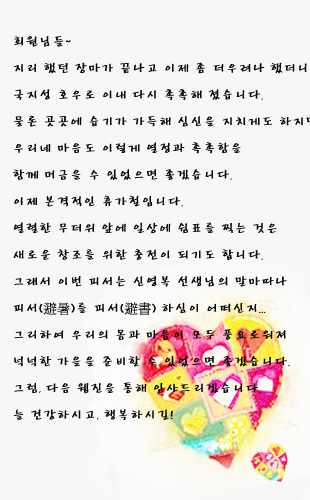 회원님들~
지리 했던 장마가 끝나고 이제 좀 더우려나 했더니
국지성 호우로 이내 다시 촉촉해 졌습니다.
물론 곳곳에 습기가 가득해 심신을 지치게도 하지만
우리네 마음도 이렇게 열정과 촉촉함을
함께 머금을 수 있었으면 좋겠습니다.
이제 본격적인 휴가철입니다.
열렬한 무더위 앞에 일상에 쉼표를 찍는 것은
새로운 창조를 위한 충전이 되기도 합니다.
그래서 이번 피서는 신영복 선생님의 말마따나
피서(避暑)를 피서(避書) 하심이 어떠신지...
그리하여 우리의 몸과 마음이 모두 풍요로워져
넉넉한 가을을 준비할 수 있었으면 좋겠습니다.
그럼, 다음 웹진을 통해 인사드리겠습니다.
늘 건강하시고, 행복하시길!